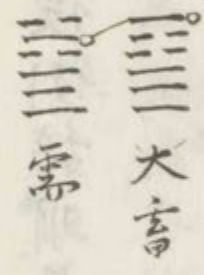 大畜
需